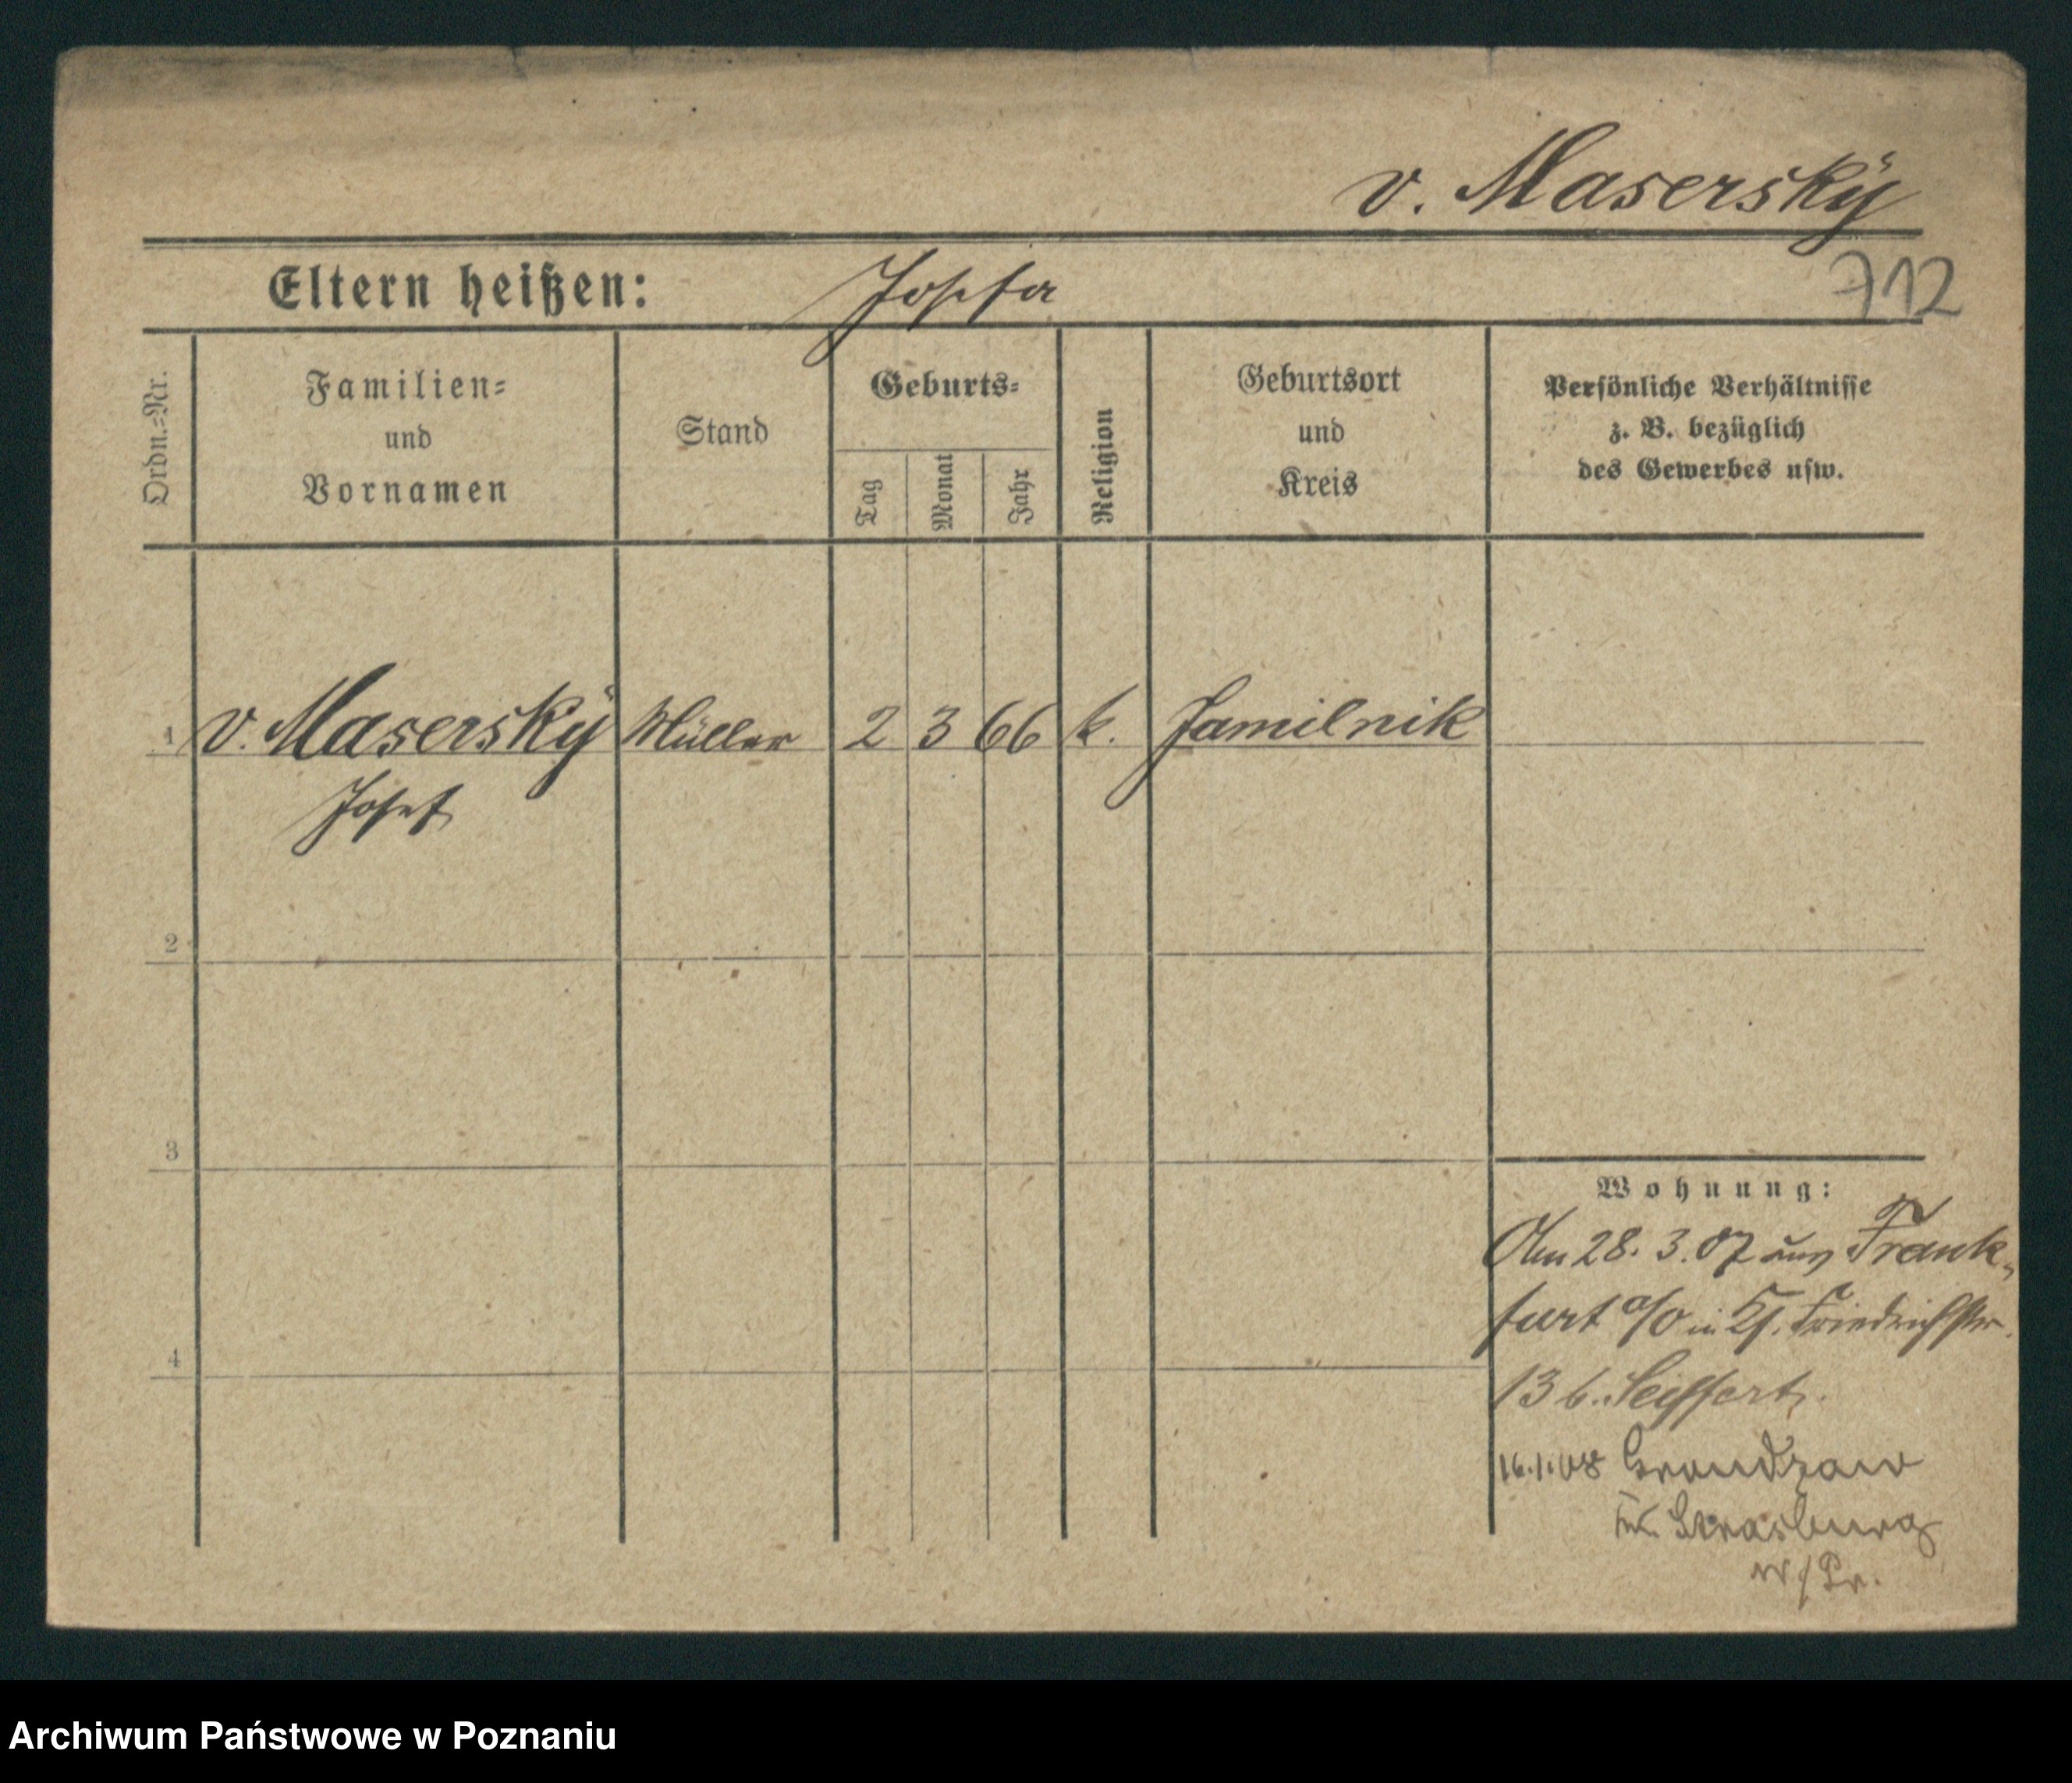 v. Maserský
712
Eltern heißen: Josefa
Ordn.-Nr.
Familien-
und
Vornamen
Stand
Geburts-
Tag
Monat
Jahr
Religion
Geburtsort
und
Kreis
Persönliche Verhältnisse
z. B. bezüglich
des Gewerbes usw.
1 v. Maserský Müller 2 3 66 k. Jamilnik
Josef
2
3
4
Wohnung:
Am 28. 3. 07 aus Frank-
furt a/O in Friedrichstr.
13 b. Seiffert.
16.1.08
Kr. Strasburg
W/Pr.
Archiwum Państwowe w Poznaniu